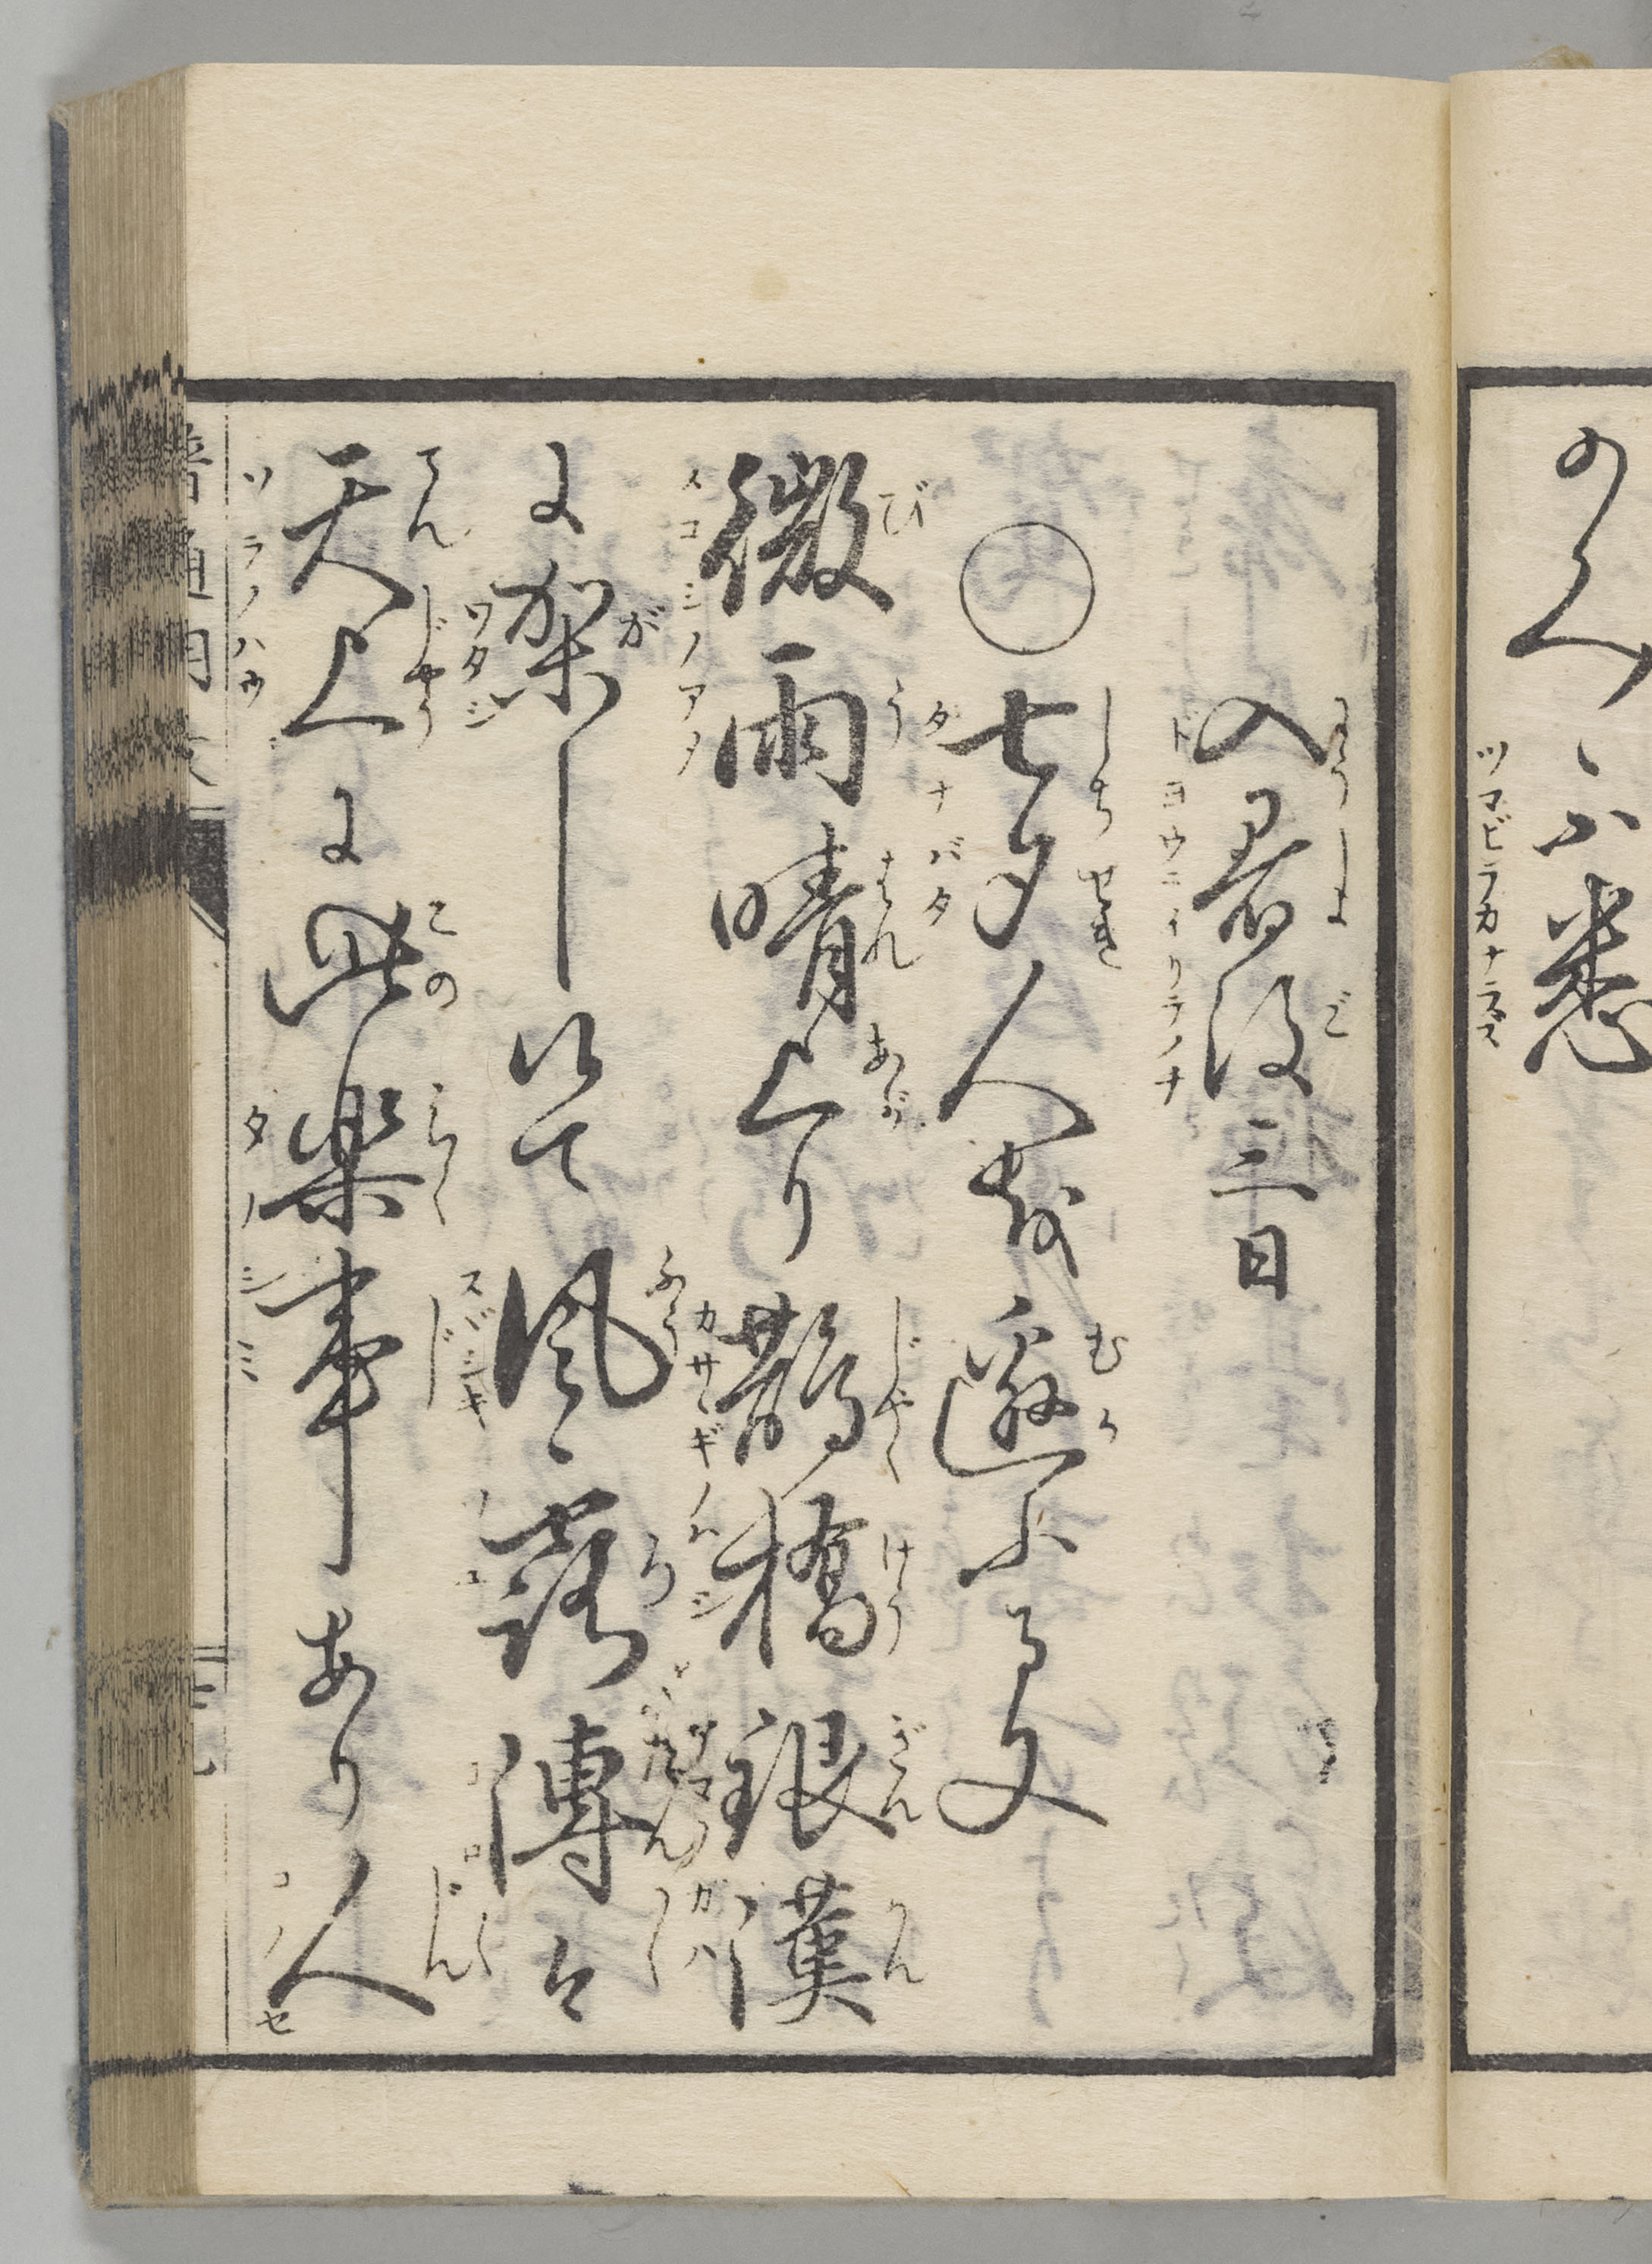 不悉
ツマビラカナラズ
にうしよ ご
入暑後三日
ドヨウニイリテノチ
しちせき むか
○七夕人を邀ふる文
タナバタ
び う はれ あが じやく けう ぎん かん
微雨晴上り鵲橋銀漢
スコシノアメ カサヽギノハシ アマノガハ
が ふう ろ たん〳〵
に架し候て風露漙々
ワタシ スヾシキ ツユ
てんじやう この らく じ じん
天上に此楽事あり人
ソラノハウ タノシミ コノセ